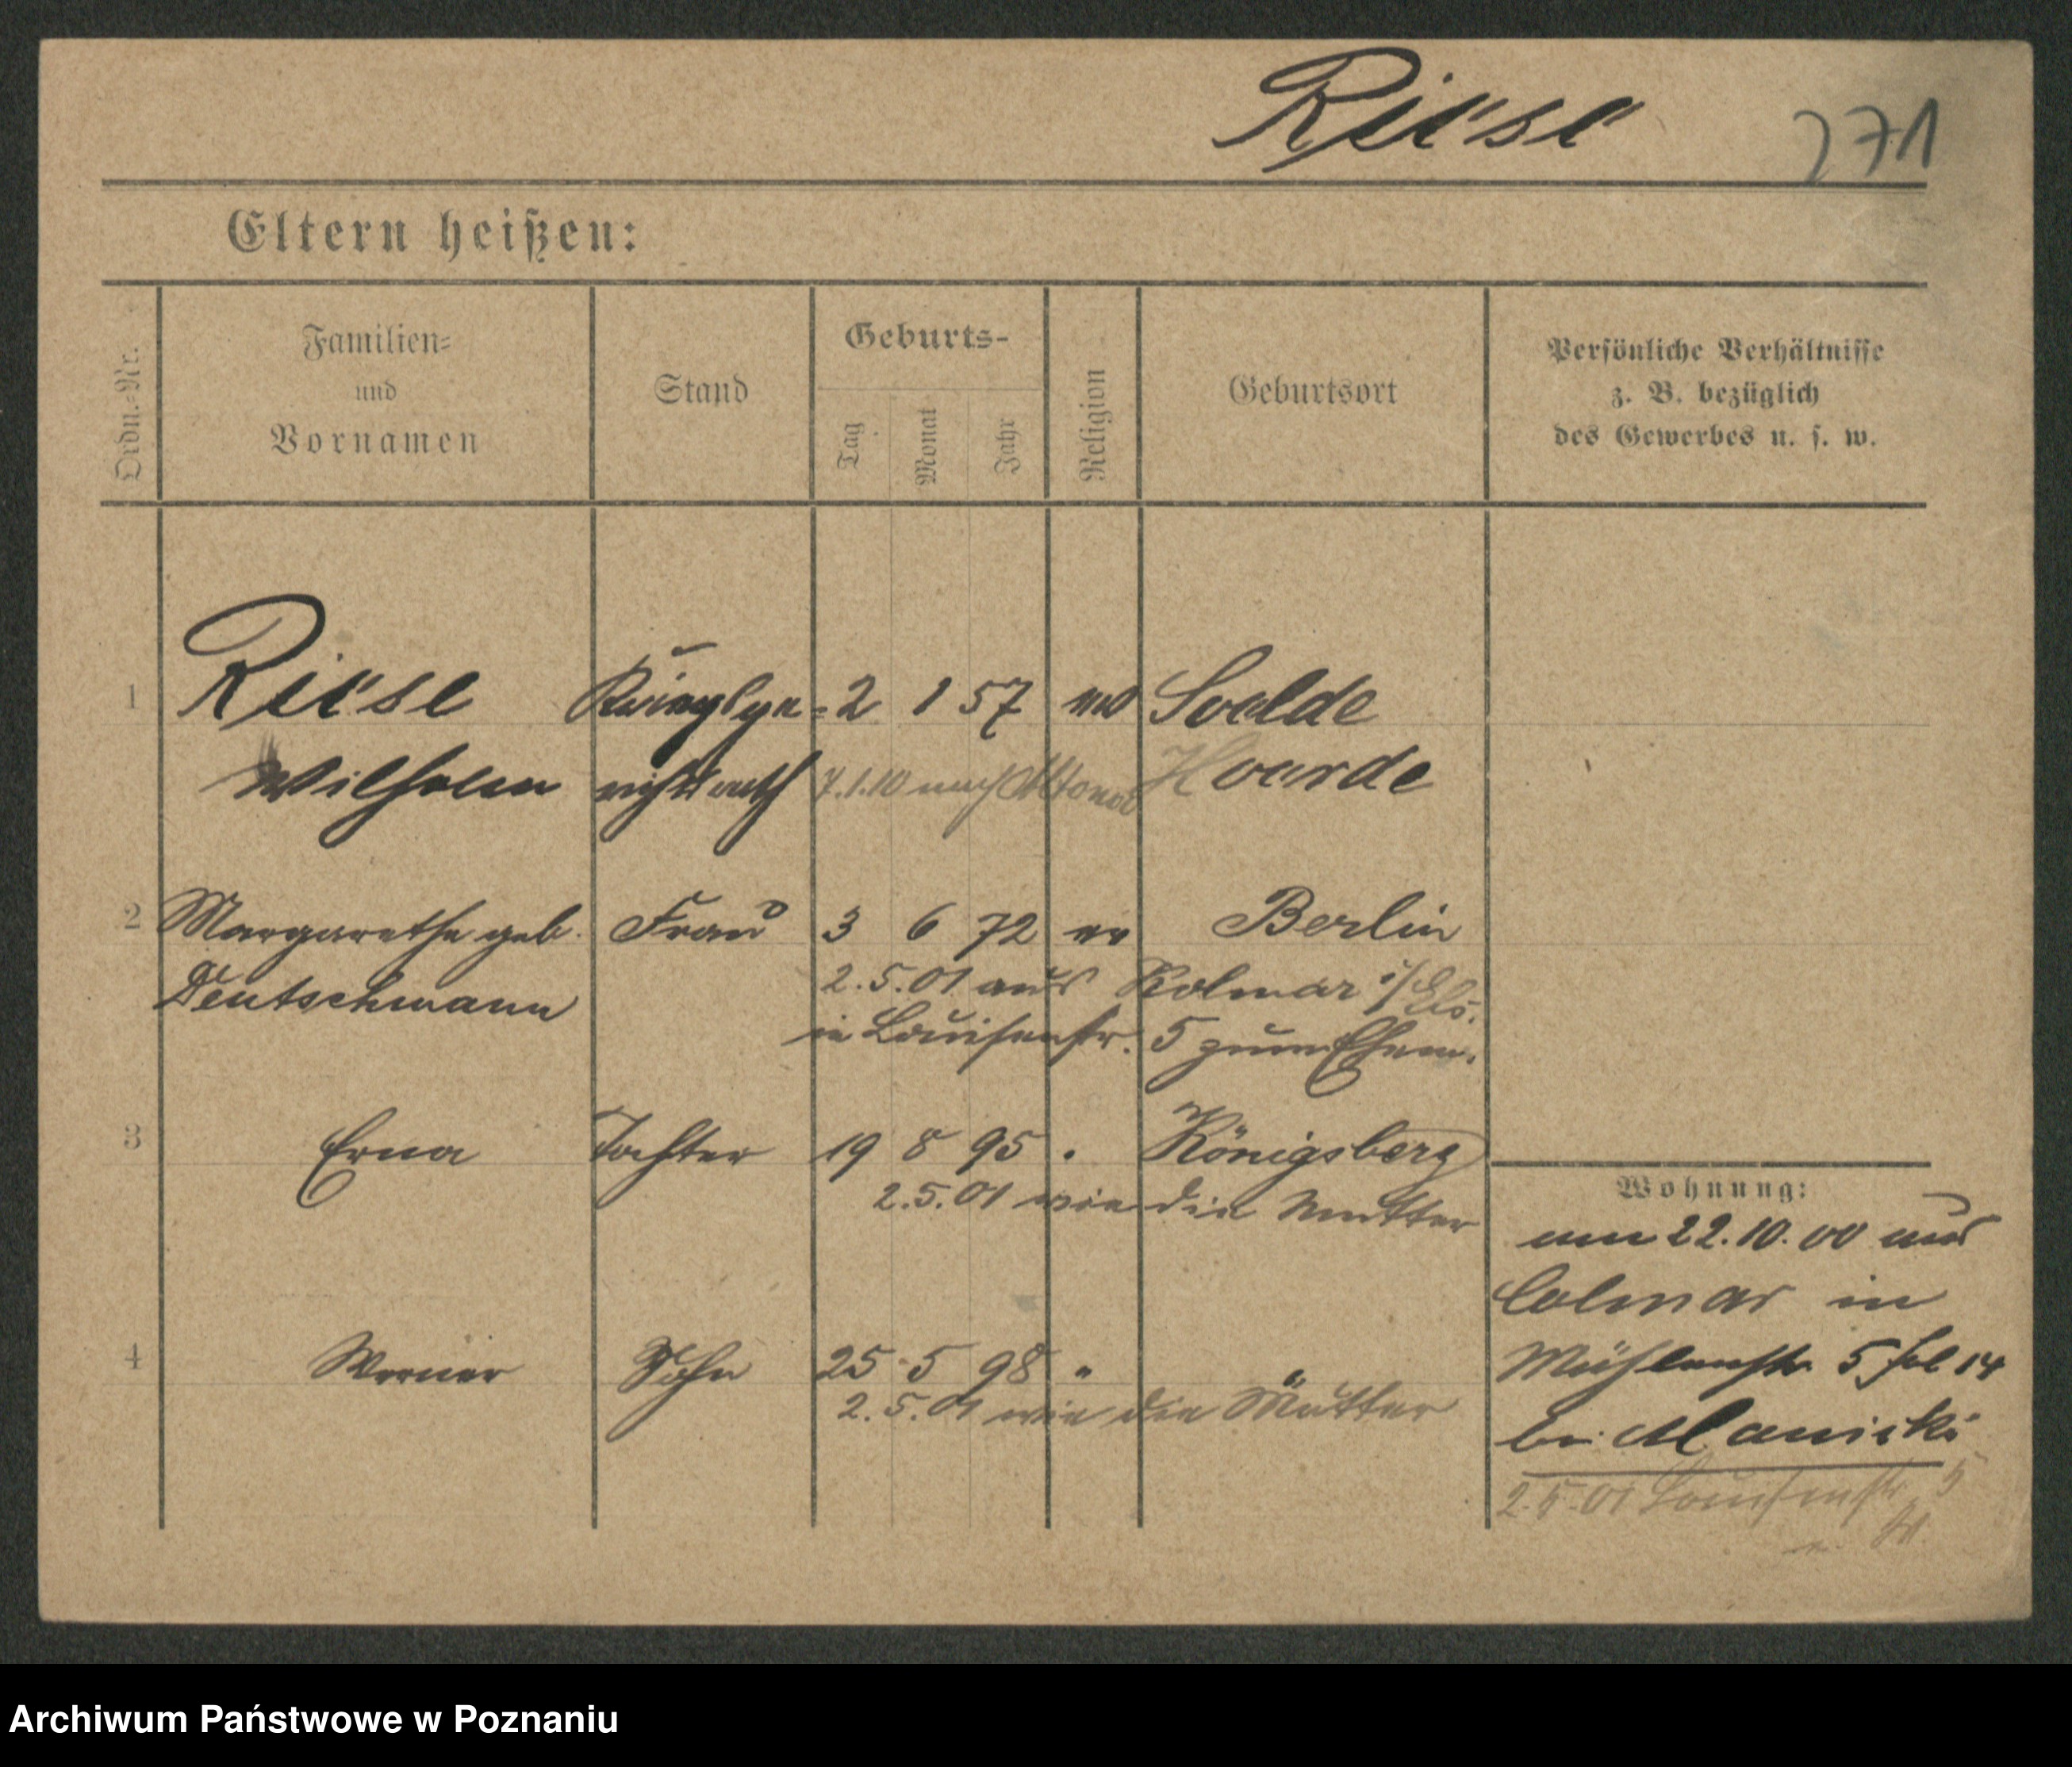 Riese 271
Eltern heißen:
Ordn.-Nr. Familien- und Vornamen Stand Geburts- Tag Monat Jahr Religion Geburtsort Persönliche Verhältnisse z. B. bezüglich des Gewerbes u. s. w.
1 Riese Kriegsge- 2 1 57 Soelde
Wilhelm richtsrath 7.1.10 nach Altona Hoerde
2 Margarethe geb. Frau 3 6 72 ev Berlin
Deutschmann 2.5.01 aus Kolmar i/Els.
in Louisenstr. 5 zum Ehem.
3 Erna Tochter 19 8 95 " Königsberg
2.5.01 wie die Mutter
Wohnung:
am 22.10.00 aus
Colmar in
4 Werner Sohn 25 5 98 " "
2.5.01 wie die Mutter
Mühlenstr. 5 14
bei Manicki
2.5.01 Louisenstr. 5
Archiwum Państwowe w Poznaniu